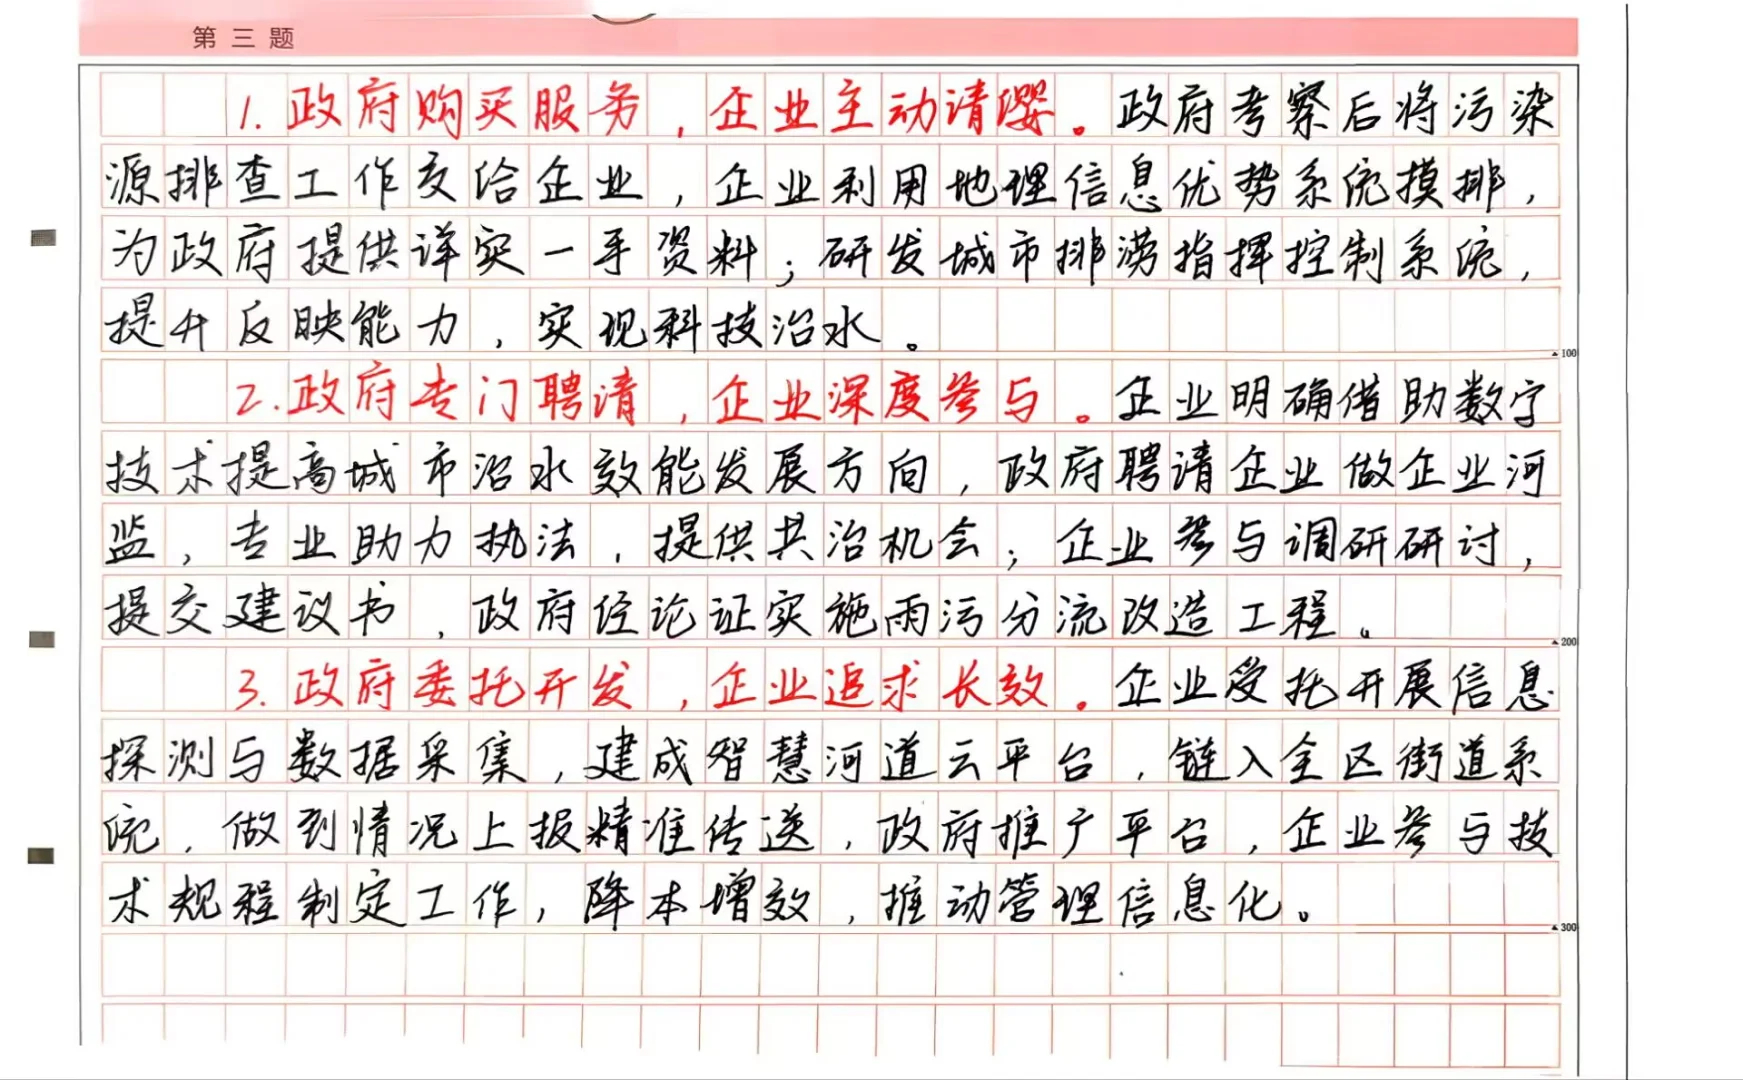 第三题
1.政府购买服务,企业主动请缨。政府考察后将污染
源排查工作交给企业,企业利用地理信息优势系统摸排,
为政府提供详实一手资料;研发城市排涝指挥控制系统,
提升反映能力,实现科技治水。
100
2.政府专门聘请,企业深度参与。企业明确借助数字
技术提高城市治水效能发展方向,政府聘请企业做企业河
监,专业助力执法,提供共治机会;企业参与调研研讨,
提交建议书,政府经论证实施雨污分流改造工程。
200
3.政府委托开发,企业追求长效。企业受托开展信息
探测与数据采集,建成智慧河道云平台,链入全区街道系
统,做到情况上报精准传送,政府推广平台,企业参与技
术规程制定工作,降本增效,推动管理信息化。
300